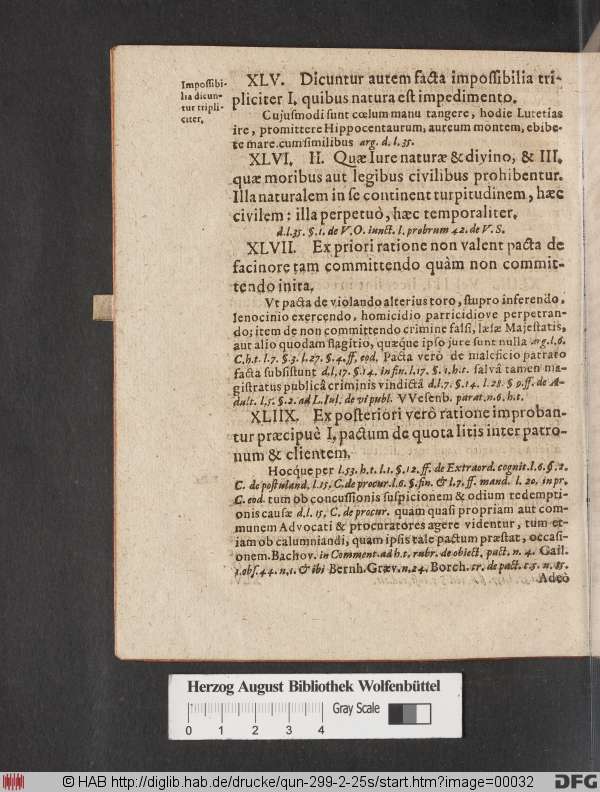 Impossibi-
lia dicun-
tur tripli-
citer.
XLV. Dicuntur autem facta impossibilia tri-
pliciter I. quibus natura est impedimento.
Cujusmodi sunt cœlum manu tangere, hodie Lutetias
ire, promittere Hippocentaurum, aureum montem, ebibe-
re mare. cum similibus arg. d. l. 35.
XLVI. II. Quæ Iure naturæ & divino, & III.
quæ moribus aut legibus civilibus prohibentur.
Illa naturalem in se continent turpitudinem, hæc
civilem: illa perpetuò, hæc temporaliter.
d. l. 35. §. 1. de V. O. iunct. l. probrum 42. de V. S.
XLVII. Ex priori ratione non valent pacta de
facinore tam committendo quàm non commit-
tendo inita.
Vt pacta de violando alterius toro, stupro inferendo,
lenocinio exercendo, homicidio parricidiove perpetran-
do; item de non committendo crimine falsi, læsæ Majestatis,
aut alio quodam flagitio, quæque ipso jure sunt nulla arg. l. 6.
C. h. t. l. 7. §. 3. l. 27. §. 4. ff. eod. Pacta verò de maleficio patrato
facta subsistunt d. l. 17. §. 14. in fin. l. 17. §. 1. h. t. salvâ tamen ma-
gistratus publicâ criminis vindictâ d. l. 7. §. 14. l. 28. § 9. ff. de A-
dult. l. 5. §. 2. ad L. Iul. de vi publ. VVesenb. parat. n. 6. h. t.
XLIIX. Ex posteriori verò ratione improban-
tur præcipuè I. pactum de quota litis inter patro-
num & clientem.
Hocque per l. 53. h. t. l. 1. §. 12. ff. de Extraord. cognit. l. 6. §. 2.
C. de postuland. l. 15. C. de procur. l. 6. §. fin. & l. 7. ff. mand. l. 20. in pr.
C. eod. tum ob concussionis suspicionem & odium redempti-
onis causæ d. l. 15. C. de procur. quam quasi propriam aut com-
munem Advocati & procuratores agere videntur, tum et-
iam ob calumniandi, quam ipsis tale pactum præstat, occasi-
onem. Bachov. in Comment. ad h. t. rubr. de obiect. pact. n. 4. Gail.
1. obs. 44. n. 1. & ibi Bernh. Græv. n. 24. Borch. tr. de pact. c. 5. n. 85.
Adeò
Herzog August Bibliothek Wolfenbüttel
0 1 2 3 4 Gray Scale
© HAB http://diglib.hab.de/drucke/qun-299-2-25s/start.htm?image=00032
DFG